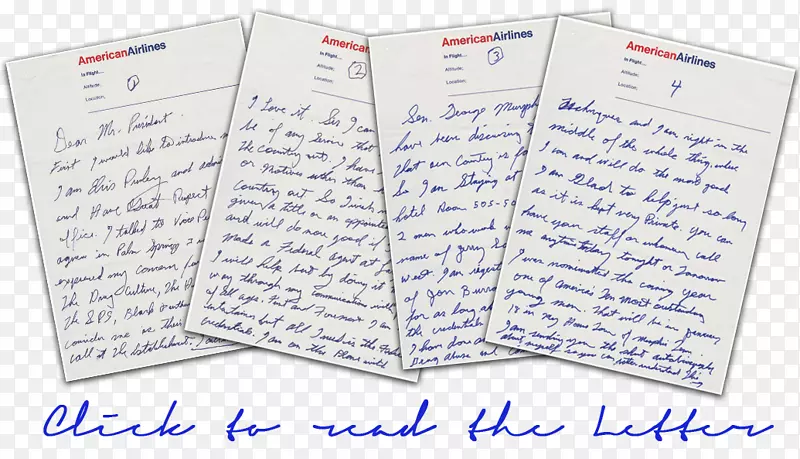 AmericanAirlines
In Flight...
Altitude:
Location:
1
Dear Mr. President.
First I would like to introduce
I am Elvis Presley and admire
and Have Great Respect
office. I talked to Vice Pr
agnew in Palm Springs
expressed my concern for
The Drug Culture, The H
The SDS, Black Panthers
consider me as their
call it the establishment. I
American
In Flight...
Altitude:
Location:
2
I Love it. Sir I can
be of any Service that
the country out. I have
or motives other than
Country out So I wish
given a title or an appointed
and will do more good if
made a Federal agent at
I will help but by doing it
way through my communications with
of all ages. First and Foremost I am
entertainer but all I need is the Federal
credentials. I am on the Plane with
AmericanAirlines
In Flight...
Altitude:
Location:
3
Sen. George Murphy
have been discussing
that our Country is fa
So I am Staying at
hotel Room 505-50
2 men who work w
name of Jerry S
West. I am regist
of Jon Burro
for as long as
the credential
I have done
Drug abuse and
AmericanAirlines
In Flight...
Altitude:
Location:
4
Techniques and I am right in the
middle of the whole thing, where
I can and will do the most good
I am Glad to help just so long
as it is kept very Private. You can
have your staff or whomever call
me anytime today tonight or Tomorrow
I was nominated the coming year
one of America's Ten most outstanding
young men. That will be in January
18 in my Home Town of Memphis Tenn.
I am sending you the short autobiography
about myself so you can better understand This
Click to read the Letter